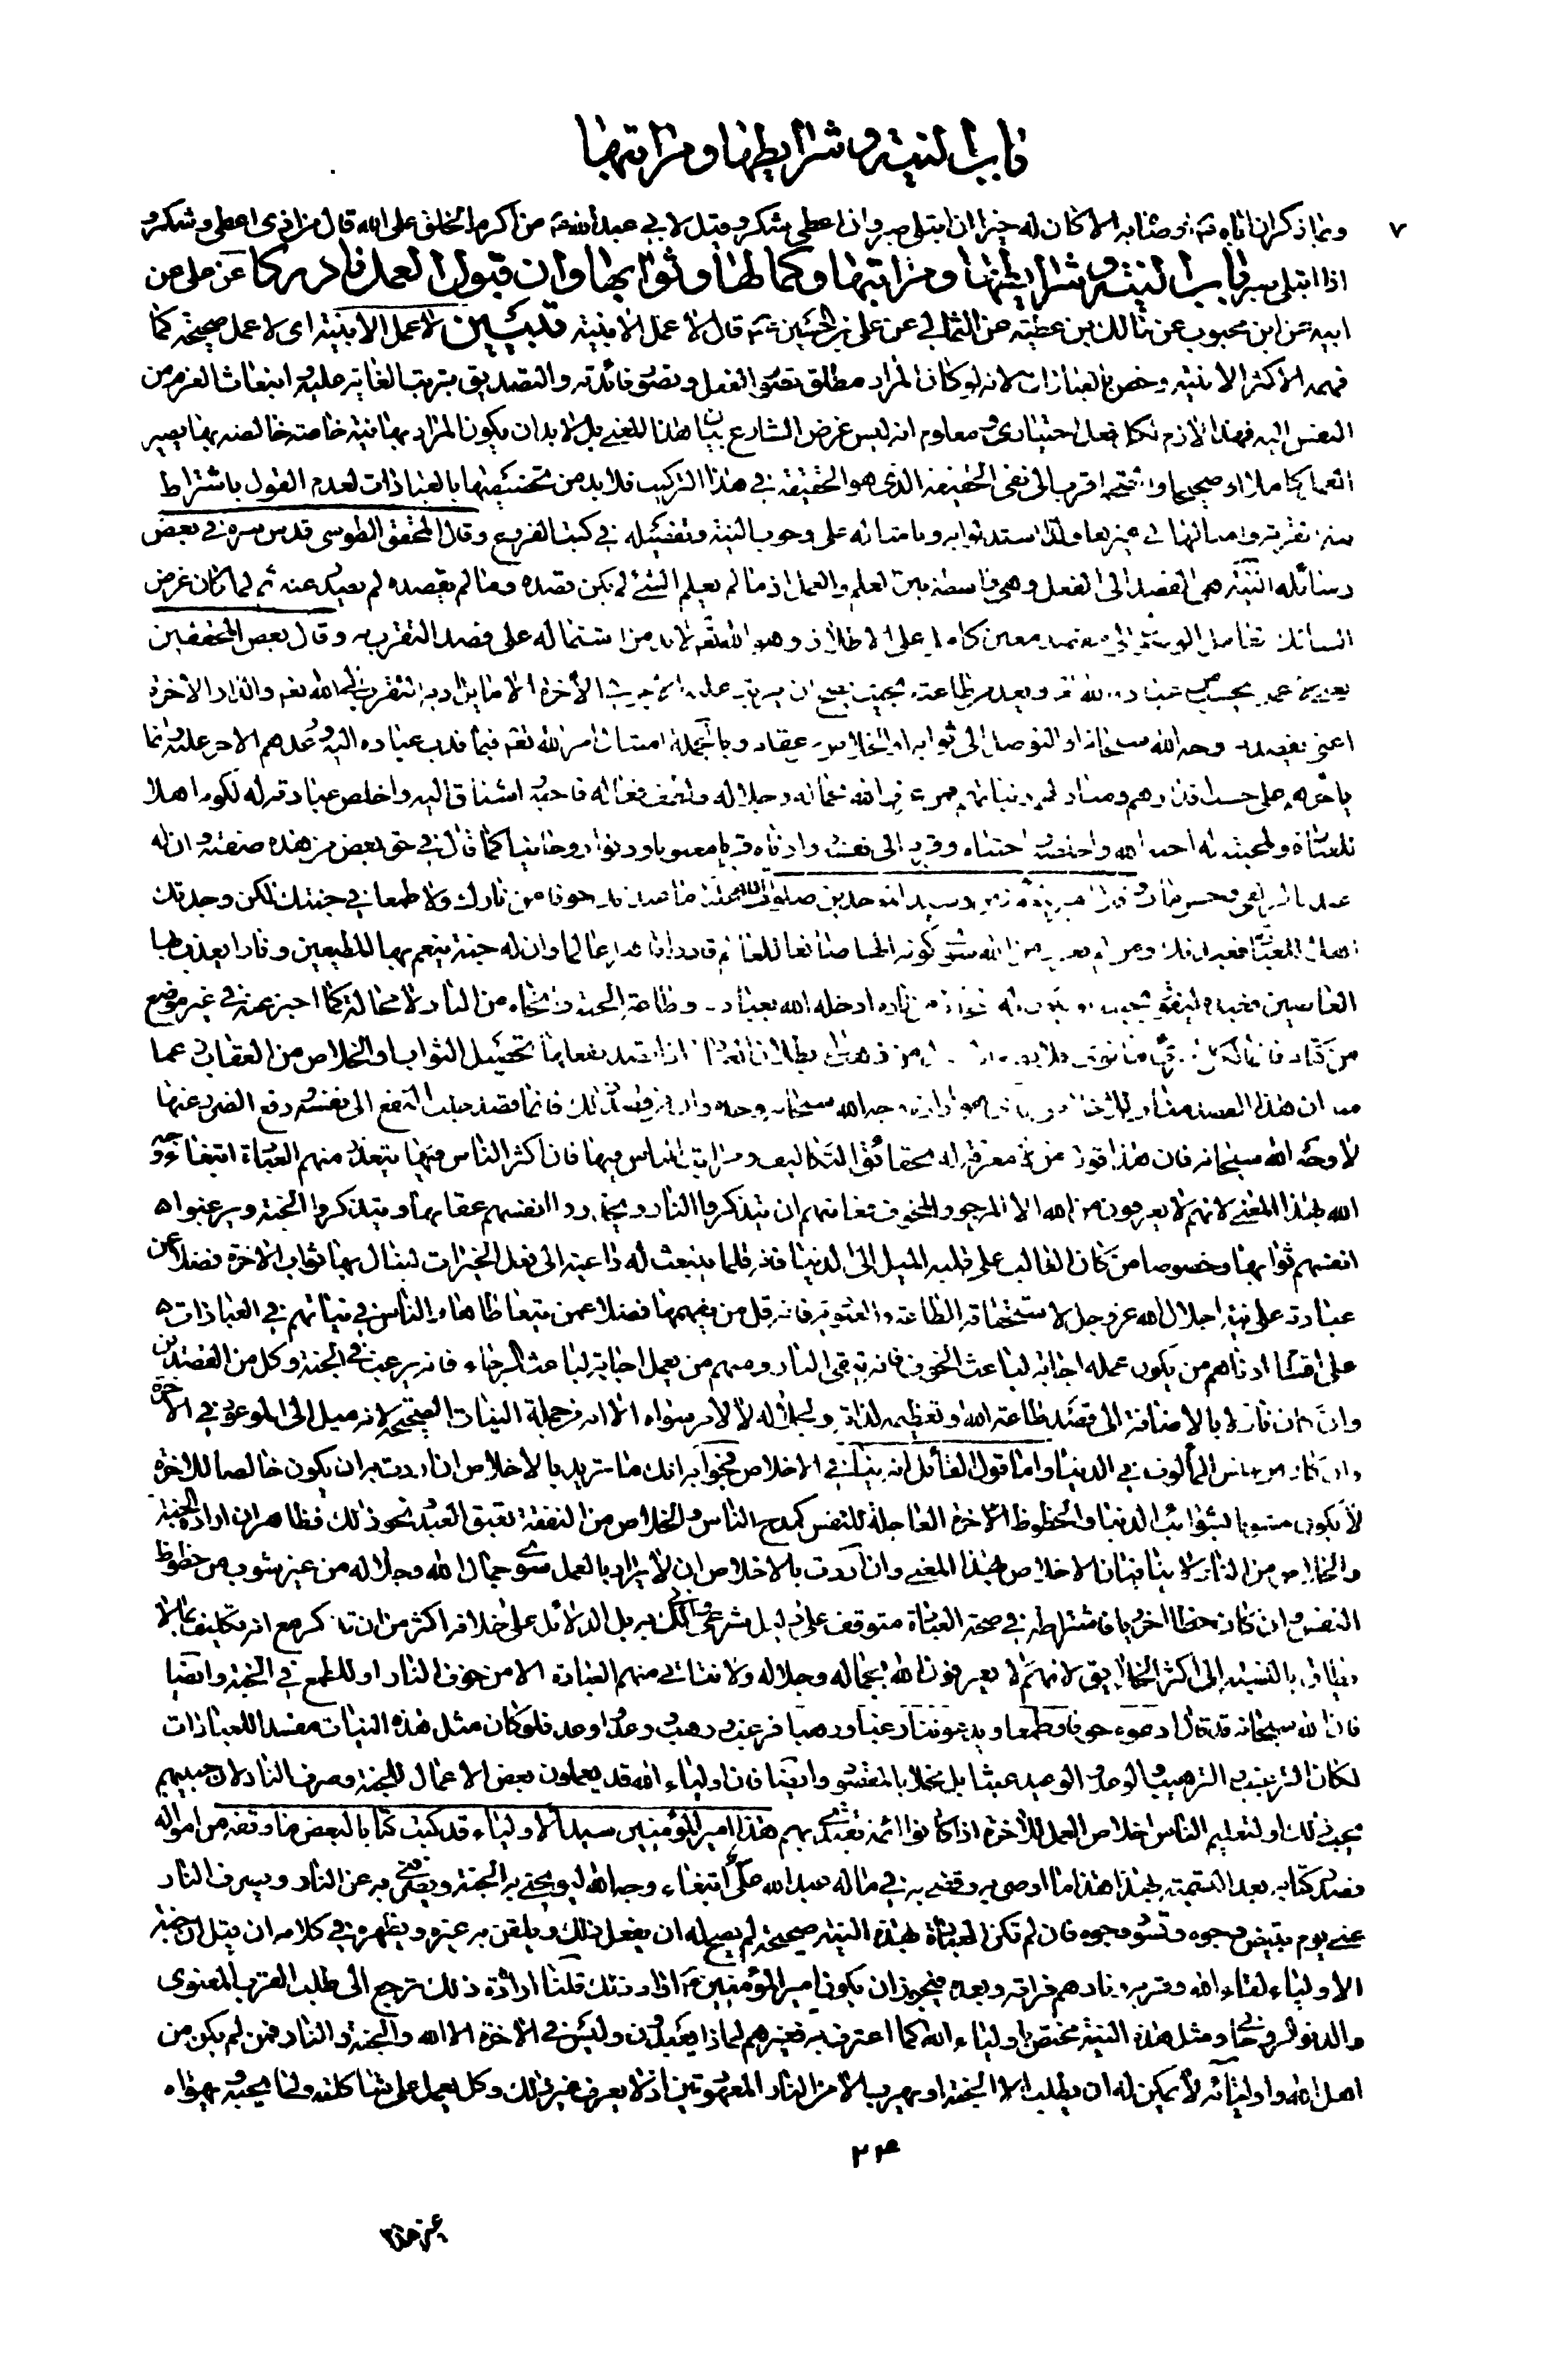 باب النية و شرايطها و مراتبها
٧
ومما ذكرنا ... الا كان له خيرا ان ابتلى صبر وان اعطى شكر وقيل لابي عبد الله عليه من اكرم الخلق على الله قال من اذى اعطى وشكر و
اذا ابتلى صبر باب النية و شرايطها و مراتبها و كمالها و ثوابها و ان قبول العمل نادر كا عن على عن
ابيه عن ابن محبوب عن مالك بن عطية عن الثمالي عن علي بن الحسين عليه قال لا عمل الا بنية تبيين لا عمل الا بنية اى لا عمل صحيح كما
فهمه الاكثر الا بنية وخص بالعبادات لانه لو كان المراد مطلق تصور الفعل وتصور فائدته والتصديق بترتب الغاية عليه و انبعاث العزم من
النفس اليه فهذا لازم لكل فعل اختيارى و معلوم انه ليس غرض الشارع بيان هذا المعنى بل لا بد ان يكون المراد بها نية خاصة خالصة بها يصير
العمل كاملا او صحيحا و الصحة اقرب الى نفى الحقيقة الذى هو الحقيقة في هذا التركيب فلا بد من تخصيصها بالعبادات لعدم القول باشتراط
نية القربة وامثالها في غيرها ولذا استدلوا به وبامثاله على وجوب النية وتفصيله في كتب الفروع وقال المحقق الطوسى قدس سره في بعض
رسائله النية هى القصد الى الفعل وهى واسطة بين العلم والعمل اذ ما لم يعلم الشئ لم يمكن قصده وما لم يقصده لم يصدر عنه ثم لما كان غرض
السالك العامل الوصول الى مقصد معين كامل على الاطلاق وهو الله تعالى لا بد من اشتماله على قصد التقرب به وقال بعض المحققين
يعنى لا عمل يحسب من عبادة الله تعالى ويعد من طاعته بحيث يصح ان يترتب عليه الاجر في الآخرة الا ما يراد به التقرب الى الله تعالى والدار الآخرة
اعنى يقصد به وجه الله سبحانه او التوصل الى ثوابه او الخلاص من عقابه وبالجملة امتثال امر الله تعالى فيما ندب عباده اليه و وعدهم الاجر عليه و انما
يأجرهم على حسب اقدارهم ومنازلهم ونياتهم فمن عرف الله بجماله وجلاله ولطف فعاله فاحبه و اشتاق اليه واخلص عبادته له لكونه اهلا
للعبادة ولمحبته له احبه الله واخلصه و اجتباه وقربه الى نفسه و ادناه قربا معنويا ودنوا روحانيا كما قال في حق بعض من هذه صفته و ان له
عندنا لزلفى وحسن مآب و قال امير المؤمنين وسيد الموحدين صلوات الله عليه ما عبدتك خوفا من نارك ولا طمعا في جنتك لكن وجدتك
اهلا للعبادة فعبدتك ومن لم يعرف من الله سوى كونه الها صانعا للعالم قادرا قاهرا عالما وان له جنة ينعم بها المطيعين ونارا يعذب بها
العاصين فعبده ليفوز بجنته او يكون له النجاة من ناره ادخله الله بعبادته وطاعته الجنة وانجاه من النار لا محالة كما اخبر عنه في غير موضع
من كتابه فانما لكل امرئ ما نوى فلا تصغ الى قول من ذهب الى بطلان العبادة اذا قصد بفعلها تحصيل الثواب او الخلاص من العقاب زعما
منه ان هذا القصد مناف للاخلاص الذى هو ارادة وجه الله سبحانه وحده وان من قصد ذلك فانما قصد جلب النفع الى نفسه و دفع الضرر عنها
لا وجه الله سبحانه فان هذا قول من لا معرفة له بحقائق التكاليف ومراتب الناس فيها فان اكثر الناس يتعذر منهم العبادة ابتغاء وجه
الله بهذا المعنى لانهم لا يعرفون من الله الا المرجو والمخوف فغايتهم ان يتذكروا النار ويحذروا انفسهم عقابها ويتذكروا الجنة ويرغبوا
انفسهم ثوابها وخصوصا من كان الغالب على قلبه الميل الى الدنيا فانه قلما ينبعث له داعية الى فعل الخيرات لينال بها ثواب الآخرة فضلا عن
عبادته على نية اجلال الله عز وجل لاستحقاقه الطاعة والعبودية فانه قل من يفهمها فضلا عمن يتعاطاها و الناس في نياتهم في العبادات
على اقسام ادناهم من يكون عمله اجابة لباعث الخوف فانه يتقى النار ومنهم من يعمل اجابة لباعث الرجاء فانه يرغب في الجنة وكل من القصدين
وان كان نازلا بالاضافة الى قصد طاعة الله وتعظيمه لذاته ولجلاله لا لامر سواه الا انه من جملة النيات الصحيحة لانه ميل الى الموعود في الآخرة
وان كان من جنس المألوف في الدنيا واما قول القائل انه ينافي الاخلاص فجوابه انك ما تريد بالاخلاص ان اردت به ان يكون خالصا للآخرة
لا يكون مشوبا بشوائب الدنيا والحظوظ العاجلة للنفس كمدح الناس والخلاص من النفقة بعتق العبد ونحو ذلك فظاهر ان ارادة الجنة
والخلاص من النار لا ينافيان الاخلاص بهذا المعنى وان اردت بالاخلاص ان لا يراد بالعمل سوى جمال الله وجلاله من غير شوب من حظوظ
النفس وان كان حظا اخرويا فاشتراطه في صحة العبادة متوقف على دليل شرعى وانى لك به بل الدلائل على خلافه اكثر من ان تذكر مع انه تكليف بما لا
يطاق بالنسبة الى اكثر الخلائق لانهم لا يعرفون الله بجماله وجلاله ولا تتأتى منهم العبادة الا من خوف النار او للطمع في الجنة وايضا
فان الله سبحانه قد قال ادعوه خوفا وطمعا ويدعوننا رغبا ورهبا فرغب و رهب و وعد و اوعد فلو كان مثل هذه النيات مفسدا للعبادات
لكان الترغيب و الترهيب و الوعد و الوعيد عبثا بل مخلا بالمقصود وايضا فان اولياء الله قد يعملون بعض الاعمال للجنة وصرف النار لان حبيبهم
يحب ذلك او لتعليم الناس اخلاص العمل للآخرة اذا كانوا ائمة يقتدى بهم هذا امير المؤمنين سيد الاولياء قد كتب كتابا لبعض ما وقفه من امواله
فصدر كتابه بعد التسمية بهذا هذا ما اوصى به وقضى به في ماله عبد الله على ابتغاء وجه الله ليولجنى به الجنة ويصرفنى به عن النار ويصرف النار
عنى يوم تبيض وجوه وتسود وجوه فان لم تكن العبادة بهذه النية صحيحة لم يصح له ان يفعل ذلك ويلقن به غيره ويظهره في كلامه ان قيل ان جنة
الاولياء لقاء الله وقربه ونارهم فراقه وبعده فيجوز ان يكون امير المؤمنين عليه اراد ذلك قلنا ارادة ذلك ترجع الى طلب القرب المعنوى
والدنو الروحانى ومثل هذه النية مختص باولياء الله كما اعترف به فغيرهم لماذا يعبدون وليس في الآخرة الا الله والجنة والنار فمن لم يكن من
اهل الله واوليائه لا يمكن له ان يطلب الا الجنة او يهرب الا من النار المعهودتين اذ لا يعرف غير ذلك وكل يعمل على شاكلته ولما يحبه و يهواه
٢٤
غير هذا